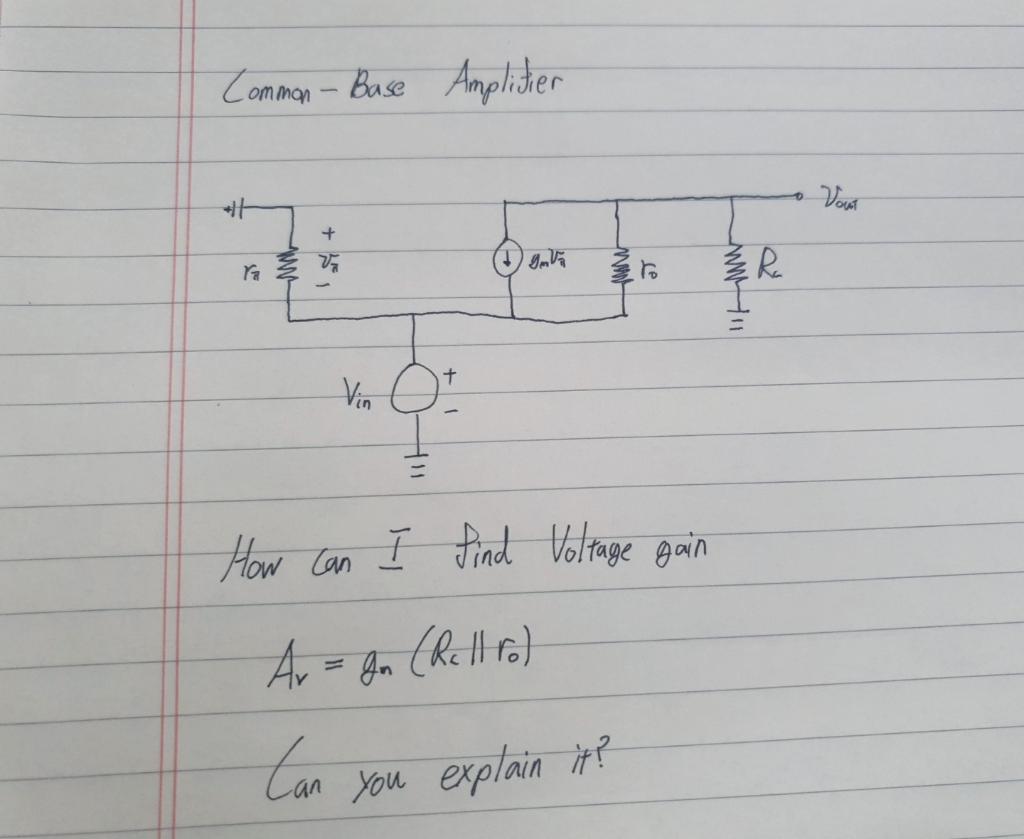 Common-Base Amplifier
Vout
+
rπ vπ gmvπ ro Rc
-
+
Vin
-
How can I find Voltage gain
Av = gm (Rc || ro)
Can you explain it?